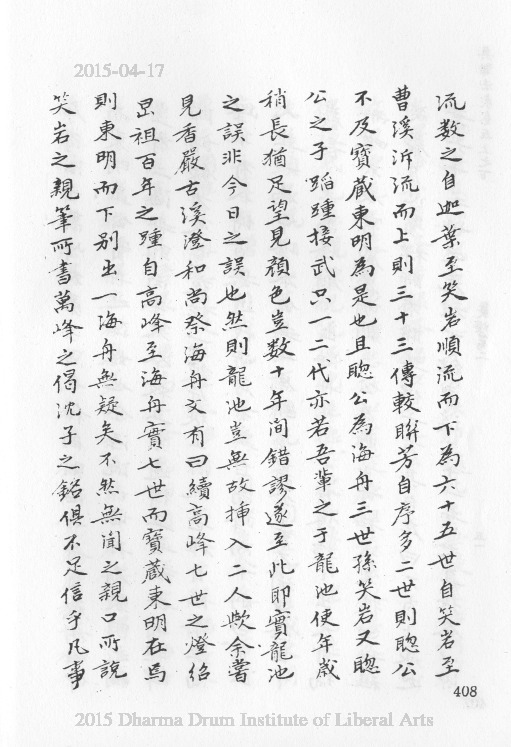 2015-04-17
流数之自迦葉至笑岩順流而下為六十五世自笑岩至
曹溪泝流而上則三十三傳較聮芳自序多二世則聰公
不及寶藏東明為是也且聰公為海舟三世孫笑岩又聰
公之子蹈踵接武只一二代亦若吾輩之于龍池使年歲
稍長猶足望見顏色豈数十年间錯謬遂至此即實龍池
之誤非今日之誤也然則龍池豈無故揷入二人歟余嘗
見香嚴古溪澄和尚祭海舟文有曰續高峰七世之燈紹
岊祖百年之踵自高峰至海舟實七世而寶蔵東明在焉
則東明而下别出一海舟無疑矣不然無聞之親口所說
笑岩之親筆所書萬峰之偈沈子之銘俱不足信乎凡事
408
2015 Dharma Drum Institute of Liberal Arts